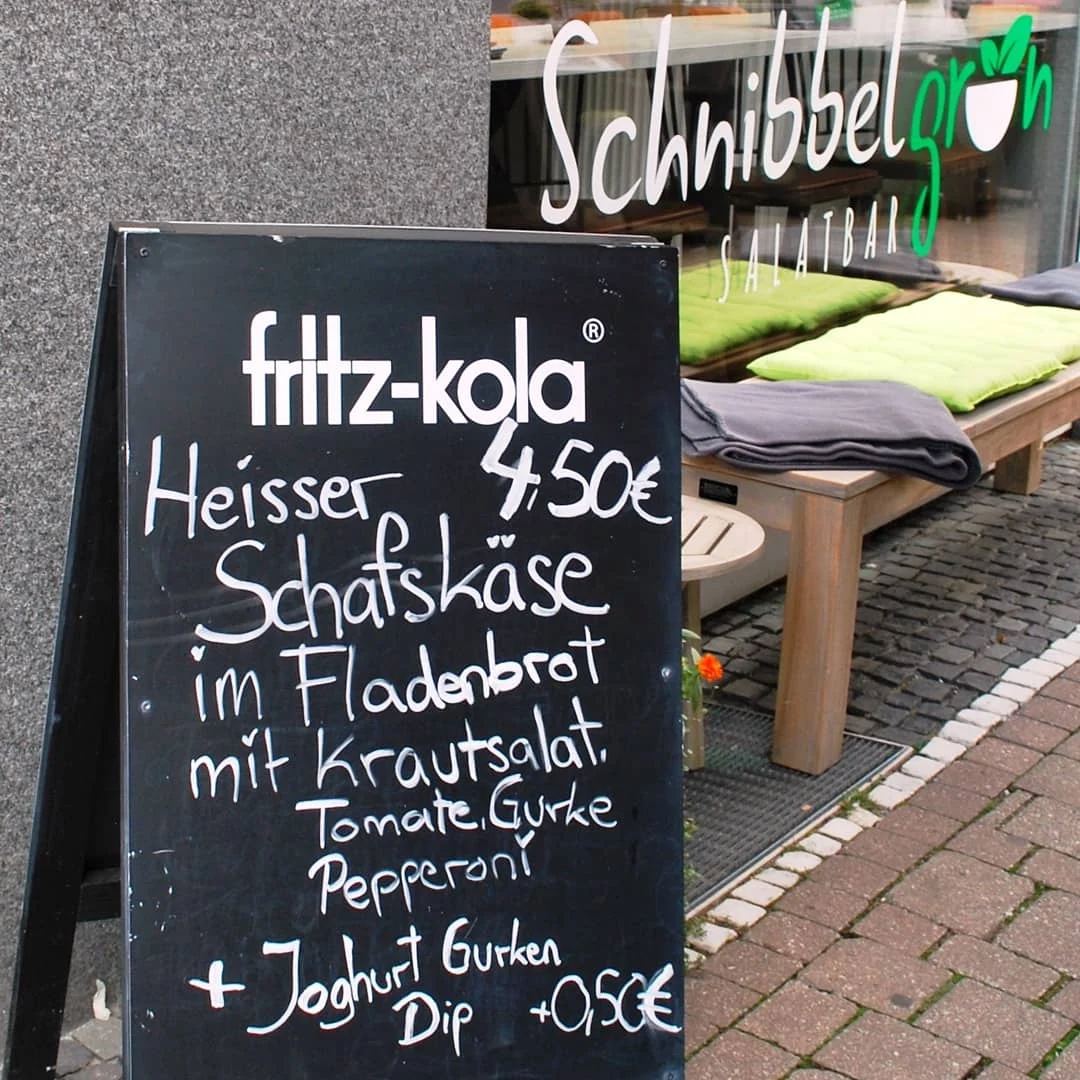 Schnibbelgrün
SALATBAR
fritz-kola®
Heisser 4,50€
Schafskäse
im Fladenbrot
mit Krautsalat,
Tomate, Gurke
Pepperoni
+ Joghurt Gurken
Dip +0,50€